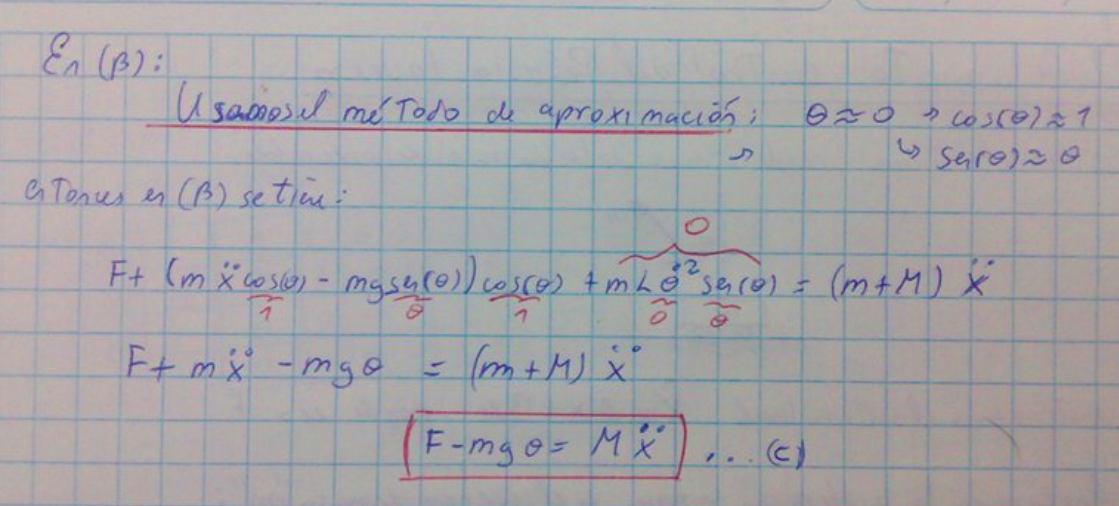 En (β):
Usamos el método de aproximación: θ ≈ 0 → cos(θ) ≈ 1
↳ sen(θ) ≈ θ
entonces en (β) se tiene:
0
F + (m ẍ cos(θ) - mg sen(θ)) cos(θ) + m L θ̇² sen(θ) = (m+M) ẍ
1 θ 1 0 θ
F + m ẍ - mg θ = (m+M) ẍ
F - mg θ = M ẍ ... (c)